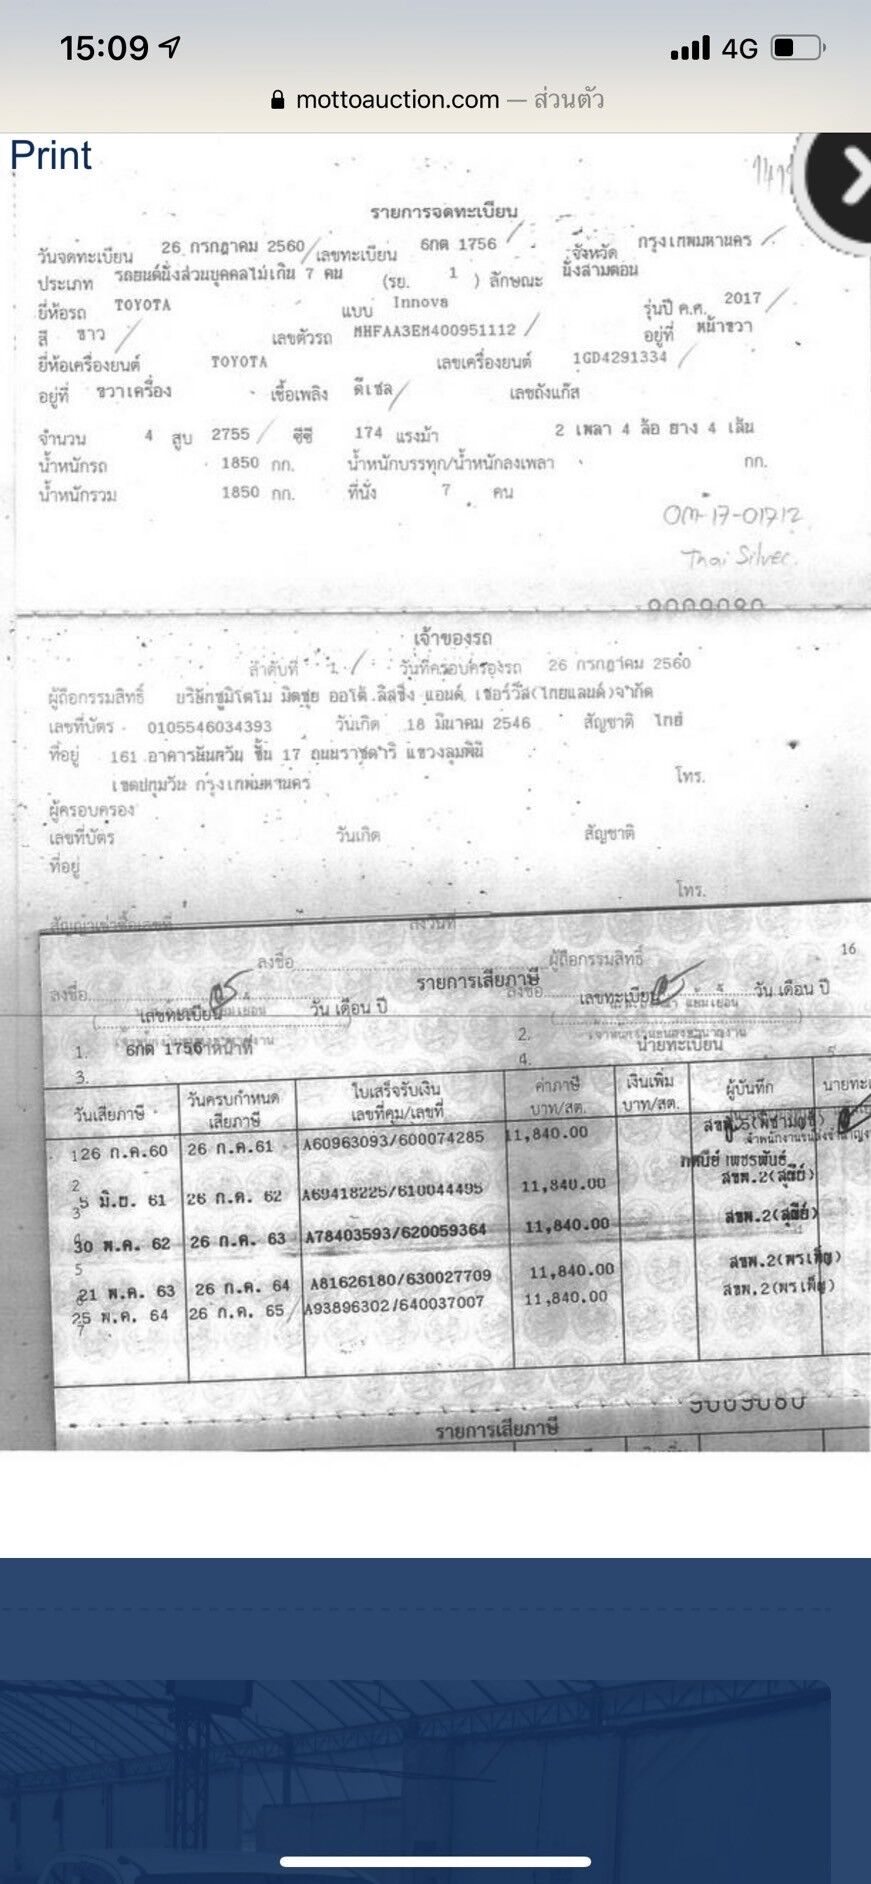 15:09
4G
mottoauction.com — ส่วนตัว
Print
รายการจดทะเบียน
วันจดทะเบียน 26 กรกฎาคม 2560 เลขทะเบียน 6กต 1756 จังหวัด กรุงเทพมหานคร
ประเภท รถยนต์นั่งส่วนบุคคลไม่เกิน 7 คน (รย. 1 ) ลักษณะ นั่งสามตอน
ยี่ห้อรถ TOYOTA แบบ Innova รุ่นปี ค.ศ. 2017
สี ขาว เลขตัวรถ MHFAA3EM400951112 อยู่ที่ หน้าขวา
ยี่ห้อเครื่องยนต์ TOYOTA เลขเครื่องยนต์ 1GD4291334
อยู่ที่ ขวาเครื่อง เชื้อเพลิง ดีเซล เลขถังแก๊ส
จำนวน 4 สูบ 2755 ซีซี 174 แรงม้า 2 เพลา 4 ล้อ ยาง 4 เส้น
น้ำหนักรถ 1850 กก. น้ำหนักบรรทุก/น้ำหนักลงเพลา กก.
น้ำหนักรวม 1850 กก. ที่นั่ง 7 คน
OM-17-01712
Thai Silver.
เจ้าของรถ
ลำดับที่ 1 วันที่ครอบครองรถ 26 กรกฎาคม 2560
ผู้ถือกรรมสิทธิ์ บริษัทซูมิโตโม มิตซุย ออโต้ ลิสซิ่ง แอนด์ เซอร์วิส(ไทยแลนด์)จำกัด
เลขที่บัตร 0105546034393 วันเกิด 18 มีนาคม 2546 สัญชาติ ไทย
ที่อยู่ 161 อาคารนันทวัน ชั้น 17 ถนนราชดำริ แขวงลุมพินี
เขตปทุมวัน กรุงเทพมหานคร โทร.
ผู้ครอบครอง
เลขที่บัตร วันเกิด สัญชาติ
ที่อยู่
โทร.
สัญญาเช่าซื้อเลขที่ ลงวันที่
ลงชื่อ ผู้ถือกรรมสิทธิ์ 16
ลงชื่อ รายการเสียภาษี ลงชื่อ
เลขทะเบียน วัน เดือน ปี เลขทะเบียน วัน เดือน ปี
1. 6กต 1756 2. นายทะเบียน
3. 4.
วันเสียภาษี วันครบกำหนดเสียภาษี ใบเสร็จรับเงิน เลขที่คุม/เลขที่ ค่าภาษี บาท/สต. เงินเพิ่ม บาท/สต. ผู้บันทึก
1 26 ก.ค.60 26 ก.ค.61 A60963093/600074285 11,840.00
2
3 5 มิ.ย. 61 26 ก.ค. 62 A69418225/610044495 11,840.00 สขพ.2(สุณีย์)
30 พ.ค. 62 26 ก.ค. 63 A78403593/620059364 11,840.00 สขพ.2(สุณีย์)
5
21 พ.ค. 63 26 ก.ค. 64 A81626180/630027709 11,840.00 สขพ.2(พรเพ็ญ)
25 พ.ค. 64 26 ก.ค. 65 A93896302/640037007 11,840.00 สขพ.2(พรเพ็ญ)
7
รายการเสียภาษี